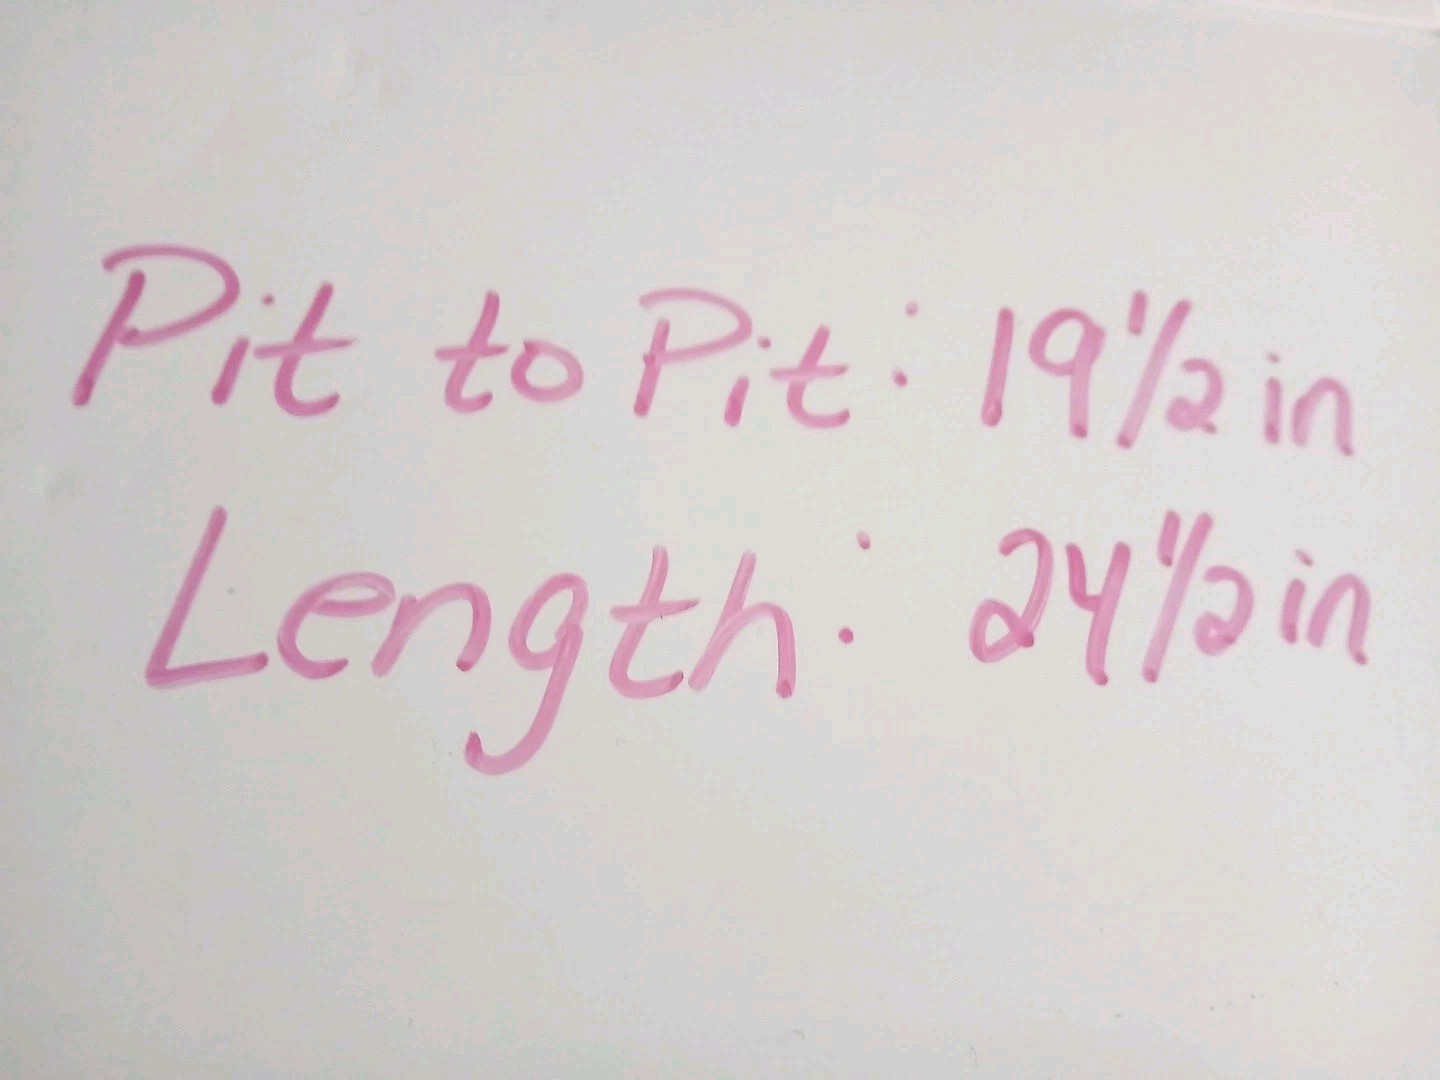 Pit to Pit: 19 1/2 in
Length: 24 1/2 in